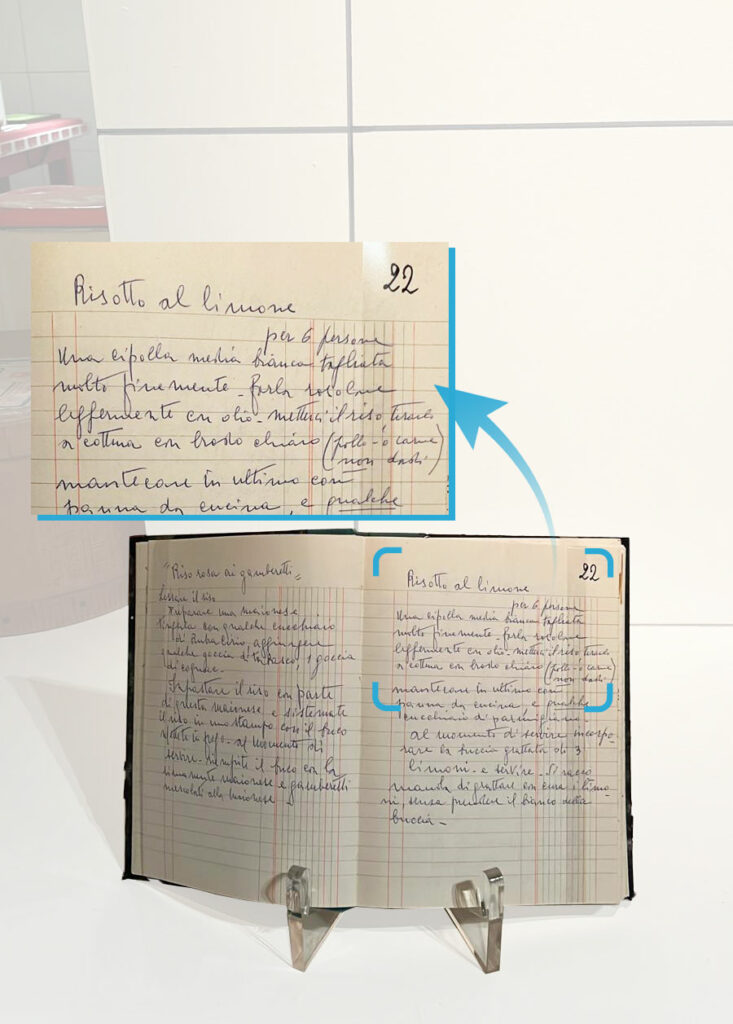 22
Risotto al limone
per 6 persone
Una cipolla media bianca tagliata
molto finemente - farla rosolare
leggermente con olio - metterci il riso tirarlo
a cottura con brodo chiaro (pollo - o carne
non dadi)
mantecare in ultimo con
panna da cucina, e qualche
"Riso rosa ai gamberetti"
Lessare il riso
Preparare una maionese
con qualche cucchiaio
di Rubra Cirio, aggiungere
qualche goccia di tabasco, 1 goccia
di cognac -
Impastare il riso con parte
di questa maionese e sistemate
il riso in uno stampo con il buco
al momento di
servire - riempite il buco con la
rimanente maionese e gamberetti
mescolati alla maionese
22
Risotto al limone
per 6 persone
Una cipolla media bianca tagliata
molto finemente - farla rosolare
leggermente con olio - metterci il riso tirarlo
a cottura con brodo chiaro (pollo - o carne
non dadi)
mantecare in ultimo con
panna da cucina, e qualche
cucchiaio di parmigiano.
al momento di servire incorpo-
rare la buccia grattata di 3
limoni - e servire - Si racco
manda di grattare con cura i limo
ni, senza prendere il bianco della
buccia -